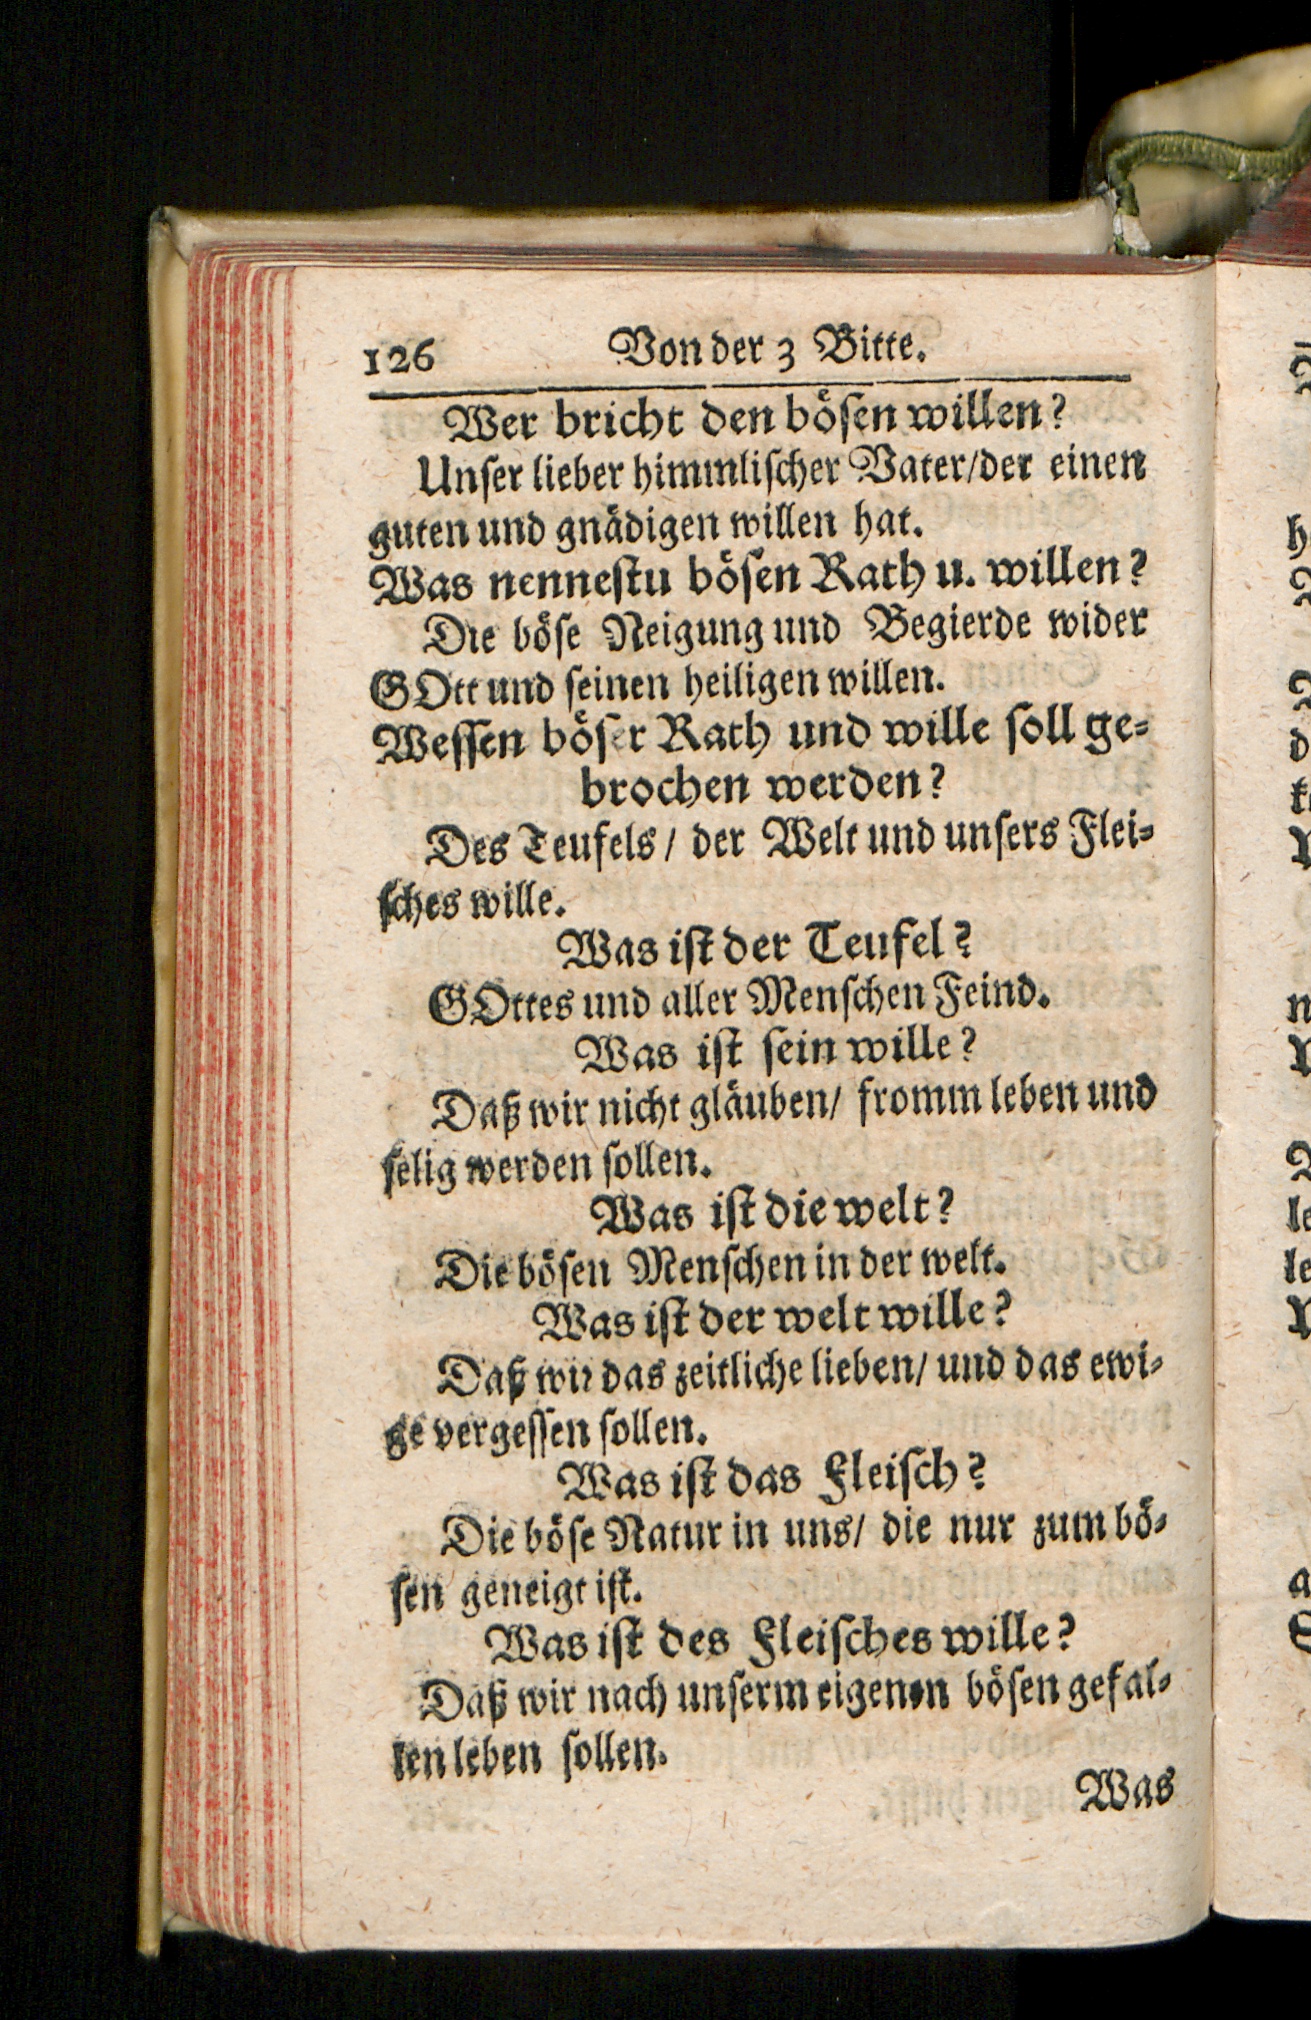 126 Von der 3 Bitte.
Wer bricht den bösen willen?
Unser lieber himmlischer Vater/der einen
guten und gnädigen willen hat.
Was nennestu bösen Rath u. willen?
Die böse Neigung und Begierde wider
GOtt und seinen heiligen willen.
Wessen böser Rath und wille soll ge-
brochen werden?
Des Teufels/ der Welt und unsers Flei-
sches wille.
Was ist der Teufel?
GOttes und aller Menschen Feind.
Was ist sein wille?
Daß wir nicht gläuben/ fromm leben und
selig werden sollen.
Was ist die welt?
Die bösen Menschen in der welt.
Was ist der welt wille?
Daß wir das zeitliche lieben/ und das ewi-
ge vergessen sollen.
Was ist das Fleisch?
Die böse Natur in uns/ die nur zum bö-
sen geneigt ist.
Was ist des Fleisches wille?
Daß wir nach unserm eigenen bösen gefal-
len leben sollen.
Was